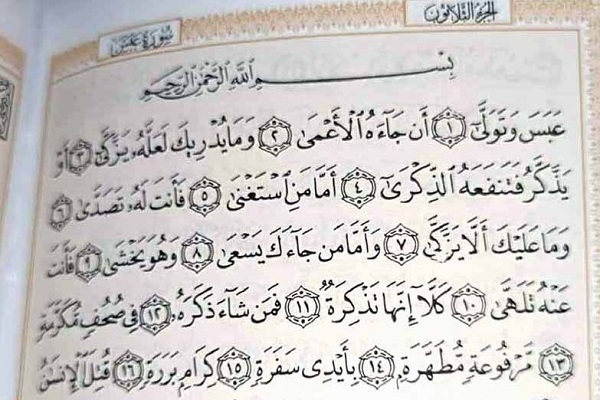 الجزء الثلاثون
سورة عبس
بِسْمِ اللَّهِ الرَّحْمَٰنِ الرَّحِيمِ
عَبَسَ وَتَوَلَّىٰٓ ١ أَن جَآءَهُ ٱلْأَعْمَىٰ ٢ وَمَا يُدْرِيكَ لَعَلَّهُۥ يَزَّكَّىٰٓ ٣ أَوْ
يَذَّكَّرُ فَتَنفَعَهُ ٱلذِّكْرَىٰٓ ٤ أَمَّا مَنِ ٱسْتَغْنَىٰ ٥ فَأَنتَ لَهُۥ تَصَدَّىٰ ٦
وَمَا عَلَيْكَ أَلَّا يَزَّكَّىٰ ٧ وَأَمَّا مَن جَآءَكَ يَسْعَىٰ ٨ وَهُوَ يَخْشَىٰ ٩ فَأَنتَ
عَنْهُ تَلَهَّىٰ ١٠ كَلَّآ إِنَّهَا تَذْكِرَةٌ ١١ فَمَن شَآءَ ذَكَرَهُۥ ١٢ فِى صُحُفٍ مُّكَرَّمَةٍ
١٣ مَّرْفُوعَةٍ مُّطَهَّرَةٍۭ ١٤ بِأَيْدِى سَفَرَةٍ ١٥ كِرَامٍۭ بَرَرَةٍ ١٦ قُتِلَ ٱلْإِنسَٰنُ